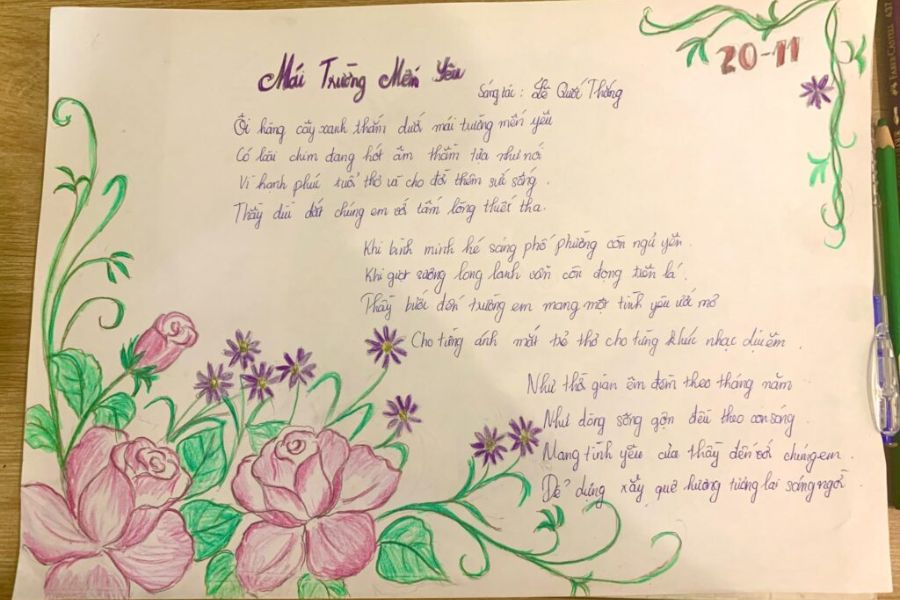 20-11
Mái Trường Mến Yêu
Sáng tác: Lê Quốc Thắng
Ôi hàng cây xanh thắm dưới mái trường mến yêu
Có loài chim đang hót âm thầm tựa như nói
Vì hạnh phúc tuổi thơ và cho đời thêm sức sống.
Thầy dìu dắt chúng em với tấm lòng thiết tha.
Khi bình minh hé sáng phố phường còn ngủ yên.
Khi giọt sương long lanh vẫn còn đọng trên lá.
Thầy bước đến trường em mang một tình yêu ước mơ
Cho từng ánh mắt trẻ thơ cho từng khúc nhạc dịu êm.
Như thời gian êm đềm theo tháng năm
Như dòng sông gợn đều theo cơn sóng.
Mang tình yêu của thầy đến với chúng em.
Để dựng xây quê hương tương lai sáng ngời.
FABER-CASTELL